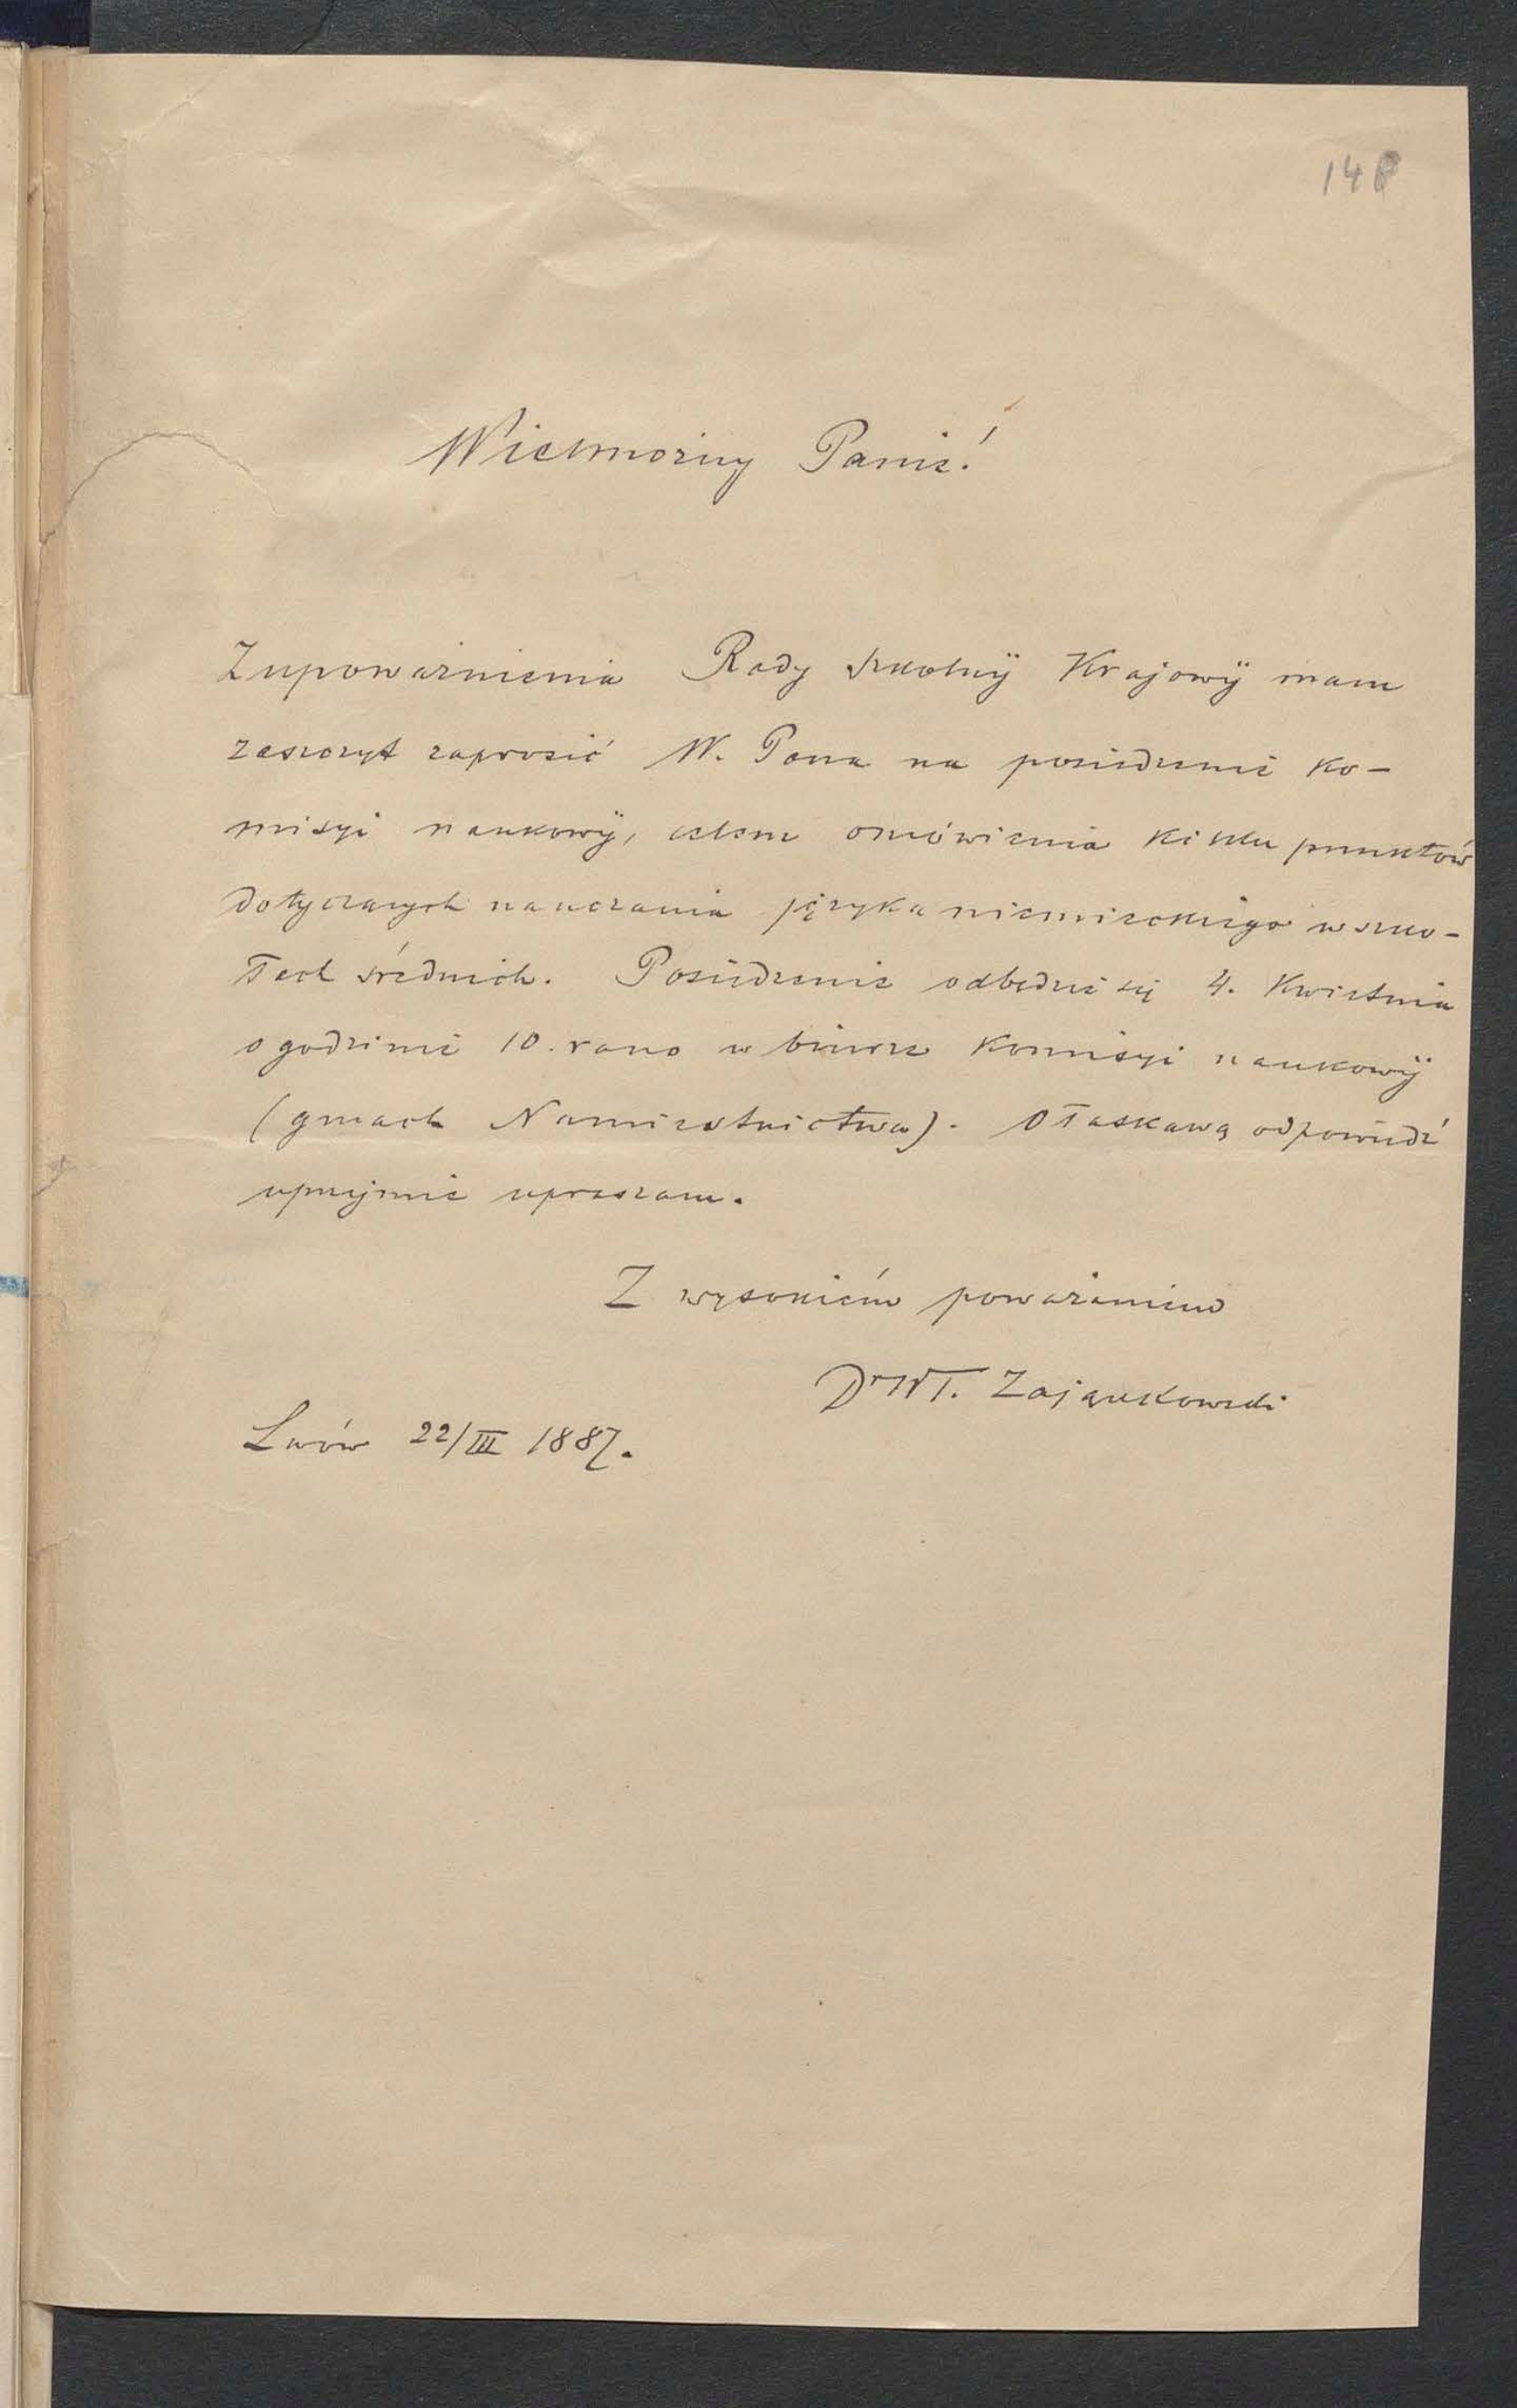 148
Wielmożny Panie!
Z upoważnienia Rady szkolnéj Krajowéj mam
zaszczyt zaprosić W. Pana na posiedzenie ko-
misyi naukowéj, celem omówienia kilku punktów
dotyczących nauczania języka niemieckiego w szko-
łach średnich. Posiedzenie odbędzie się 4. Kwietnia
o godzinie 10. rano w biurze Komisyi naukowéj
(gmach Namiestnictwa). O łaskawą odpowiedź
uprzejmie upraszam.
Z wysokiém poważaniem
Dr Wł. Zajączkowski
Lwów 22/III 1887.